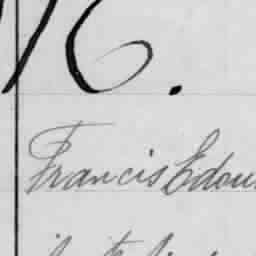 16.
Francis Edou